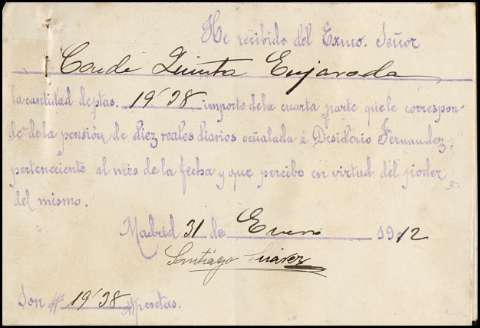 He recibido del Excmo. Señor
Conde Quinta Enjarada
la cantidad de ptas. 19'38 importe de la cuarta parte que le correspon-
de de la pensión de diez reales diarios señalada á Desiderio Fernandez,
perteneciente al mes de la fecha y que percibo en virtud del poder
del mismo.
Madrid 31 de Enero 1912
Santiago Suarez
Son # 19'38 # pesetas.